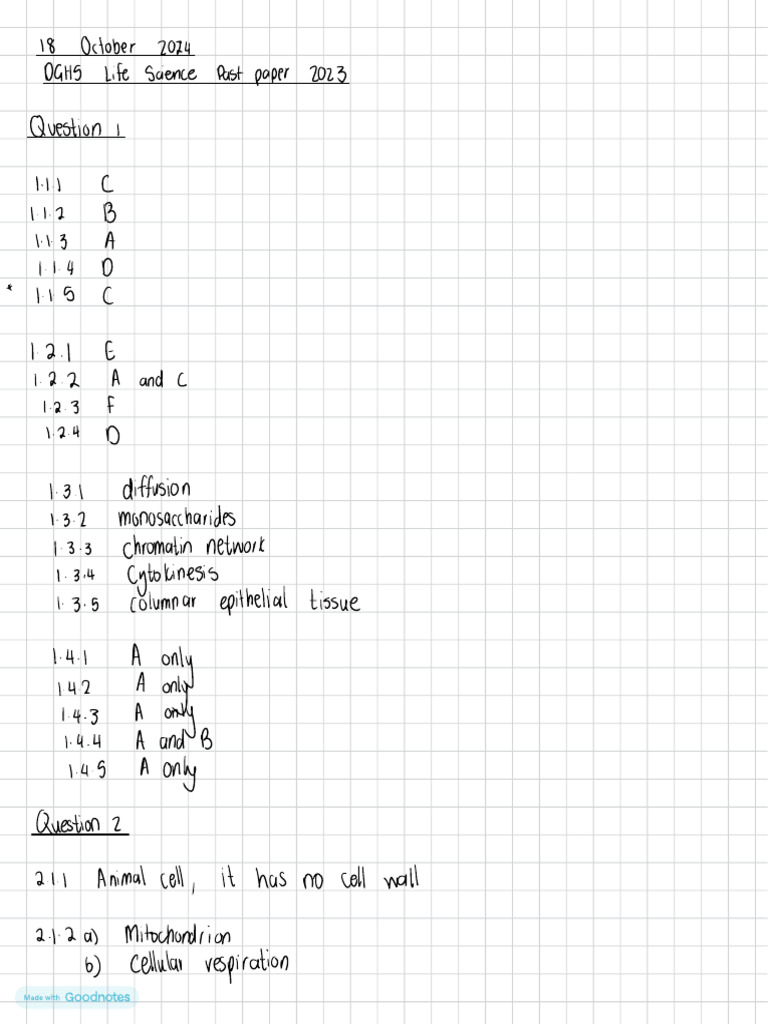 18 October 2024
DGHS Life Science Past paper 2023
Question 1
1.1.1 C
1.1.2 B
1.1.3 A
1.1.4 D
* 1.1.5 C
1.2.1 E
1.2.2 A and C
1.2.3 F
1.2.4 D
1.3.1 diffusion
1.3.2 monosaccharides
1.3.3 chromatin network
1.3.4 Cytokinesis
1.3.5 columnar epithelial tissue
1.4.1 A only
1.4.2 A only
1.4.3 A only
1.4.4 A and B
1.4.5 A only
Question 2
2.1.1 Animal cell, it has no cell wall
2.1.2 a) Mitochondrion
b) cellular respiration
Made with Goodnotes